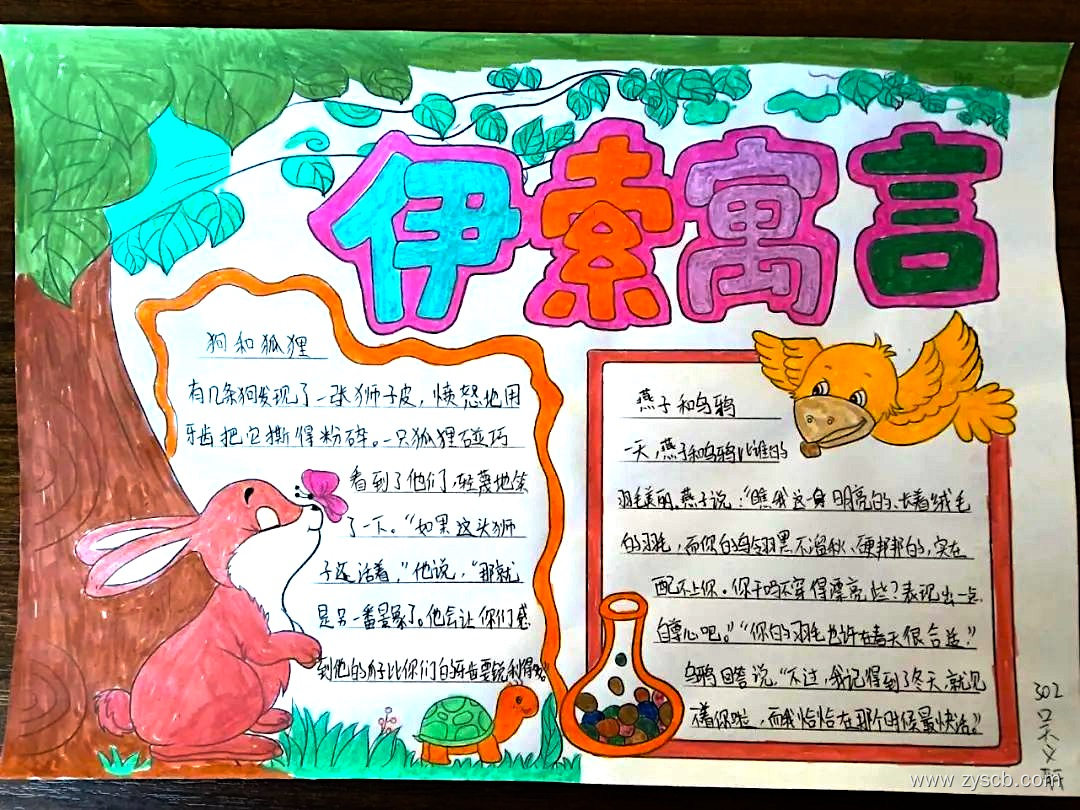 伊索寓言
狗和狐狸
有几条狗发现了一张狮子皮，愤怒地用
牙齿把它撕得粉碎。一只狐狸碰巧
看到了他们，轻蔑地笑
了一下。“如果这头狮
子还活着，”他说，“那就
是另一番景象了。他会让你们感
到他的爪子比你们的牙齿要锐利得多。”
燕子和乌鸦
一天，燕子和乌鸦比谁的
羽毛美丽。燕子说：“瞧我这一身明亮的、长着绒毛
的羽毛，而你的乌翎黑不溜秋、硬邦邦的，实在
配不上你。你干吗不穿得漂亮些？表现出一点
自尊心吧。”“你的羽毛也许在春天很合适。”
乌鸦回答说，“不过，我记得到了冬天，就见
不着你啦，而我恰恰在那个时候最快活。”
302
www.zyscb.com